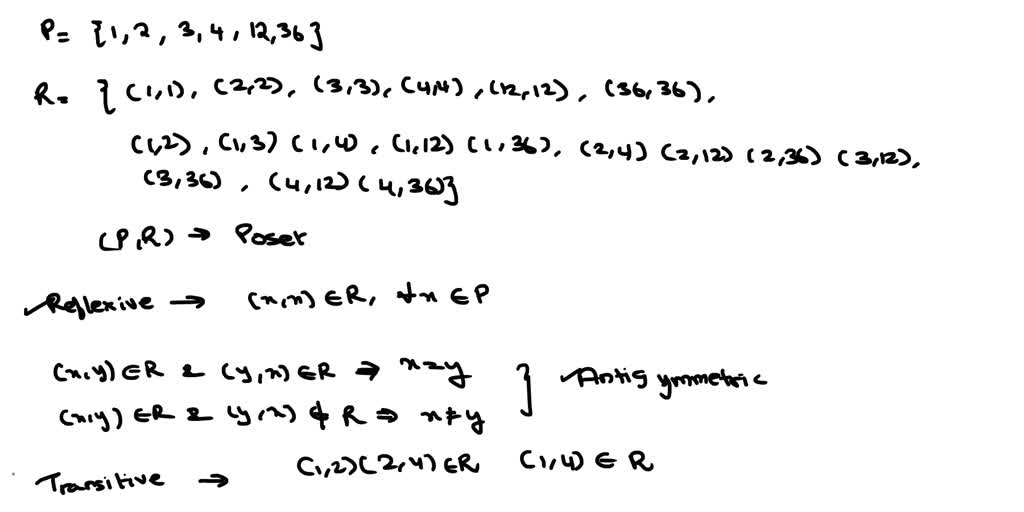 P= {1,2,3,4,12,36}
R= {(1,1), (2,2), (3,3), (4,4), (12,12), (36,36),
(1,2), (1,3) (1,4), (1,12) (1,36), (2,4) (2,12) (2,36) (3,12),
(3,36), (4,12) (4,36)}
(P,R) → Poset
✓Reflexive → (x,x) ∈ R, ∀x ∈ P
(x,y) ∈ R & (y,x) ∈ R ⇒ x=y } ✓Antisymmetric
(x,y) ∈ R & (y,x) ∉ R ⇒ x≠y
Transitive → (1,2)(2,4) ∈ R (1,4) ∈ R